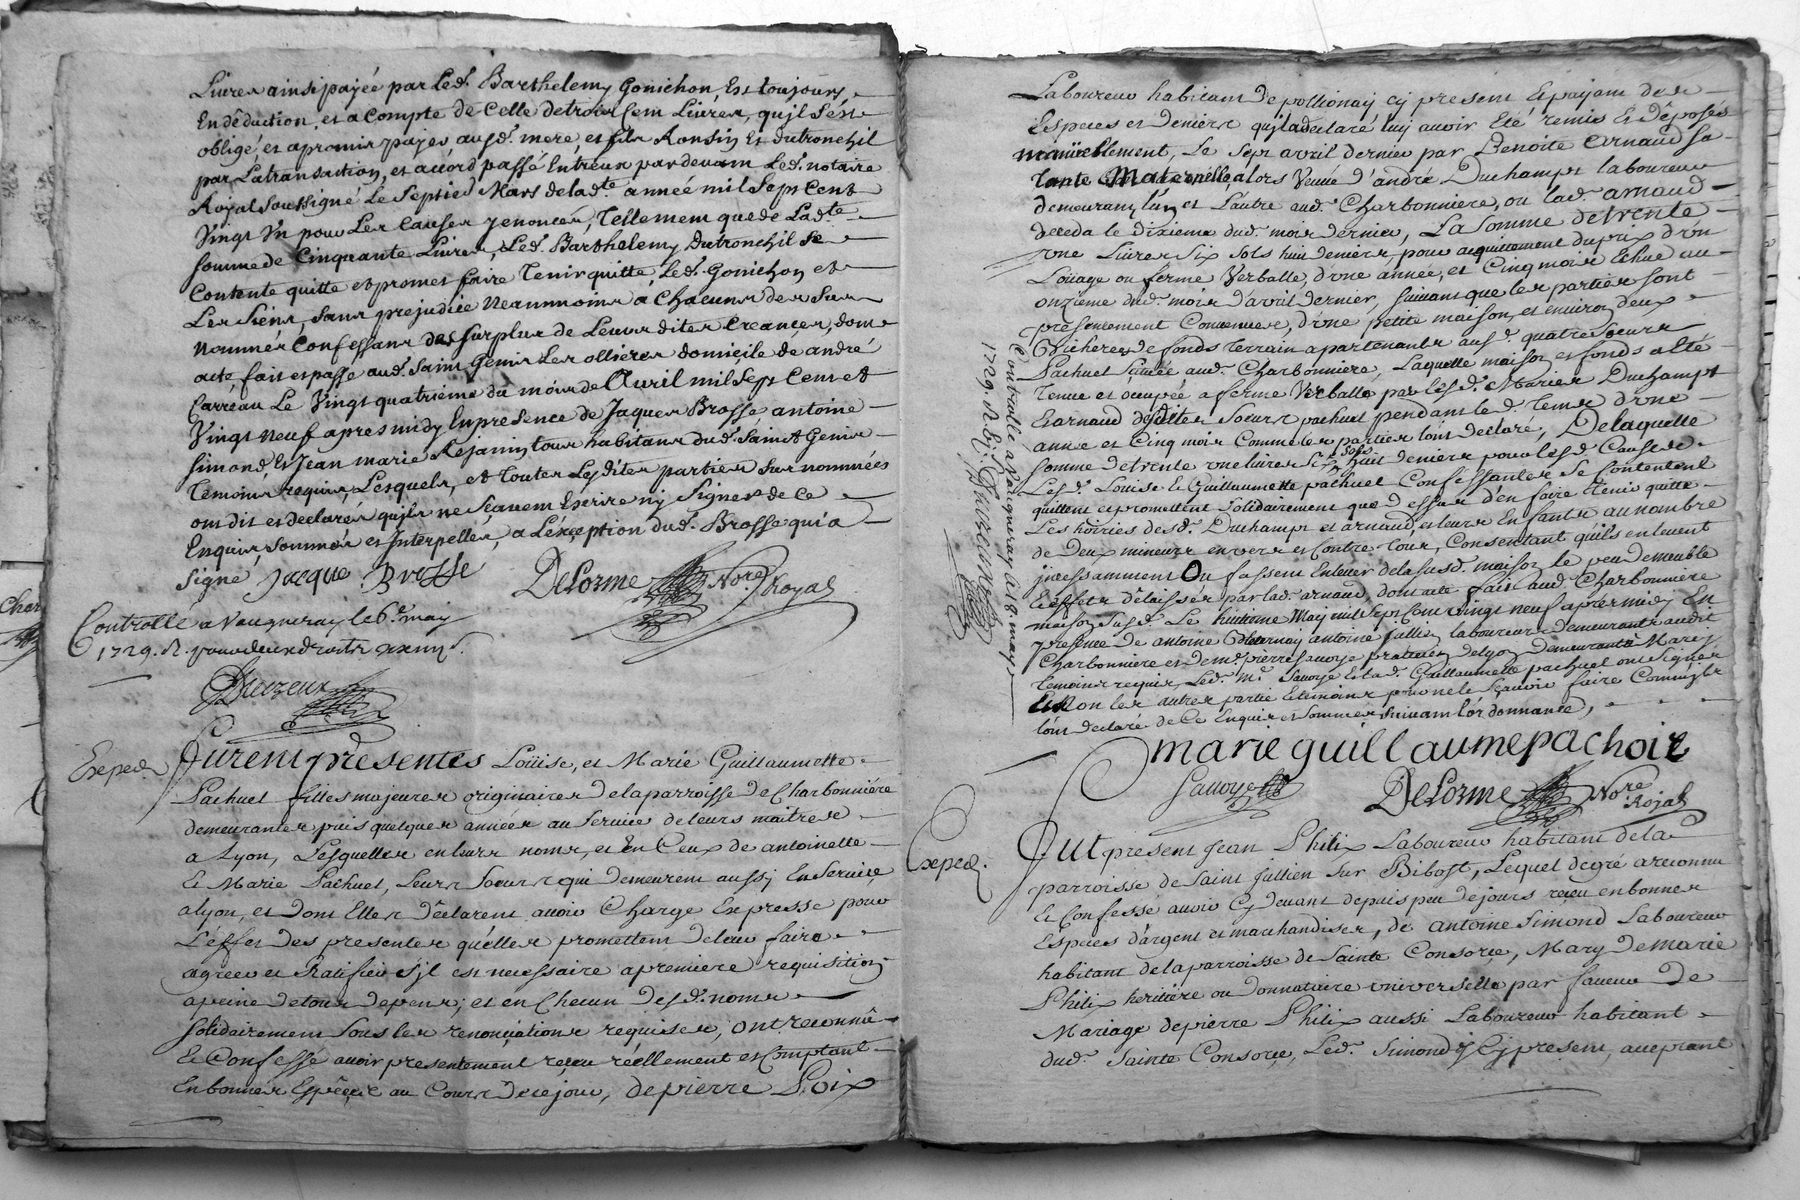 Livres ainsi payée par Led. Barthelemy Gonichon Est toujours
En déduction, et a Compte de Celle de trois Cent Livres, qu'il s'est
obligé, et a promis payer, ausd. mere, et fils Ronsin Et dutronchil
par La transaction, et accord passé Entreux par devant Led. notaire
Royal soussigné Le Septieme Mars de lad.te année mil Sept Cent
Vingt Un pour Les Causes y enoncées, Tellement que de Lad.te
somme de Cinquante Livres, Led. Barthelemy dutronchil se
Contente quitte et promet faire Tenir quitte Led. Gonichon et
Les siens, sans prejudice Neanmoins à Chacuns des sus
nommés Confessans des surplus de Leurs dites Creances, dont
acte fait et passé aud. Saint Genis Les ollieres domicile de andré
Carreau Le Vingt quatrieme du mois de Avril mil Sept Cent et
Vingt neuf apres midy En presence de Jaques Brosse antoine
simond Et Jean marie Rejanin tous habitans dud. Saint Genis
Temoins requis, Lesquels, et Toutes Lesdites parties sus nommées
ont dit et declarés qu'ils ne Scavent Escrire ny Signer de Ce
Enquis sommés et Interpellés, a L'exception dud. Brosse qui a
signé, Jacque Brosse
DeLorme Nore Royal
Controllé a Vaugneray le 6e may
1729. R. pour deux droits
Expéd.
Furent presentes Loüise, et Marie Guillaumette
Pachuel filles majeures originaires de la parroisse de Charbonniere
demeurantes puis quelques années au service de leurs maitres
a Lyon, Lesquelles en leurs noms, et En Ceux de antoinette
Et Marie Pachuel, Leurs Soeurs qui demeurent aussy En Service
a lyon, et dont Elles declarent avoir Charge Expresse pour
L'effet des presentes qu'elles promettent de leur faire
agreer et Ratifier s'jl est necessaire a premiere requisition
a peine de tous depens; et en Chacun desd. noms
solidairement sous les renonciations requises, ont reconnû
Et Confesse avoir presentement reçu réellement et Comptant
En bonnes Espèces au Cours de ce jour, de pierre Poix
Laboureur habitant de pollionay cy present Et payant des
Especes et deniers qu'il a declaré luy avoir Eté remis et deposés
manüellement, Le sept avril dernier par Benoite Arnaud sa
Tante Maternelle, alors Veuve d'andré Duchamps laboureur
demeurans l'un et L'autre aud. Charbonniere, ou lad. arnaud
deceda le dixieme dud. mois dernier, La somme de trente
vne Livres Six sols huit deniers pour acquittement du prix d'vn
Loüage ou ferme Verballe, d'vne année, et Cinq mois Echue au
onzieme dud. mois d'avril dernier, suivant que les parties sont
presentement Convenues, d'vne petite maison, et environ deux
Bicherees de fonds terrain apartenants ausd. quatre soeurs
Pachuel scituée aud. Charbonniere, Laquelle maison et fonds a eté
Tenue et occupée a ferme Verballe par lesd. Mariés Duchamps
Et arnaud desdites soeurs pachuel pendant led. tems d'vne
année et Cinq mois Comme les parties l'ont declaré, De laquelle
somme de trente vne livres six sols huit deniers pour lesd. Causes
Lesd. Louise Et Guillaumette pachuel Confessantes se Contentent
quittent et promettent solidairement que dessus d'en faire Tenir quitte
Les hoiries desd. Duchamps et arnaud, et leurs Enfants au nombre
de Deux mineurs envers et Contre tous, Consentant qu'ils enlevent
jncessamment Ou fassent Enlever de la susd. maison le peu de meuble
Et effets delaissés par lad. arnaud, dont acte fait aud. Charbonniere
maison susd. Le huitieme May mil sept Cent vingt neuf aprés midy En
presence de antoine antoine Jullien laboureurs demeurants audit
Charbonniere et de m.e pierre Savoye praticien de lyon demeurant à Marcy
Temoins requis, Led. M.e Savoye Et lad. Guillaumette pachuel ont signés
Et non les autres partie Et temoins pour ne le sçavoir faire Comm'ils
l'ont declaré de Ce Enquis et sommés suivant l'ordonnance,
marie guillaume pachoir
Savoye
DeLorme Nore Royal
Controllé a Vaugneray le 18 may
1729. R.
Expéd.
Fut present Jean Philix Laboureur habitant de la
parroisse de saint Jullien sur Bibost, Lequel de gré a reconnu
Et Confessé avoir Cy devant depuis peu de jours reçu en bonnes
Especes d'argent et marchandises, de antoine Simond Laboureur
habitant de la parroisse de Sainte Consorce, Mary de Marie
Philix heritiere ou donnataire universelle par faveur de
Mariage de pierre Philix aussi Laboureur habitant
dud. Sainte Consorce, Led. Simond Cy present, acceptant